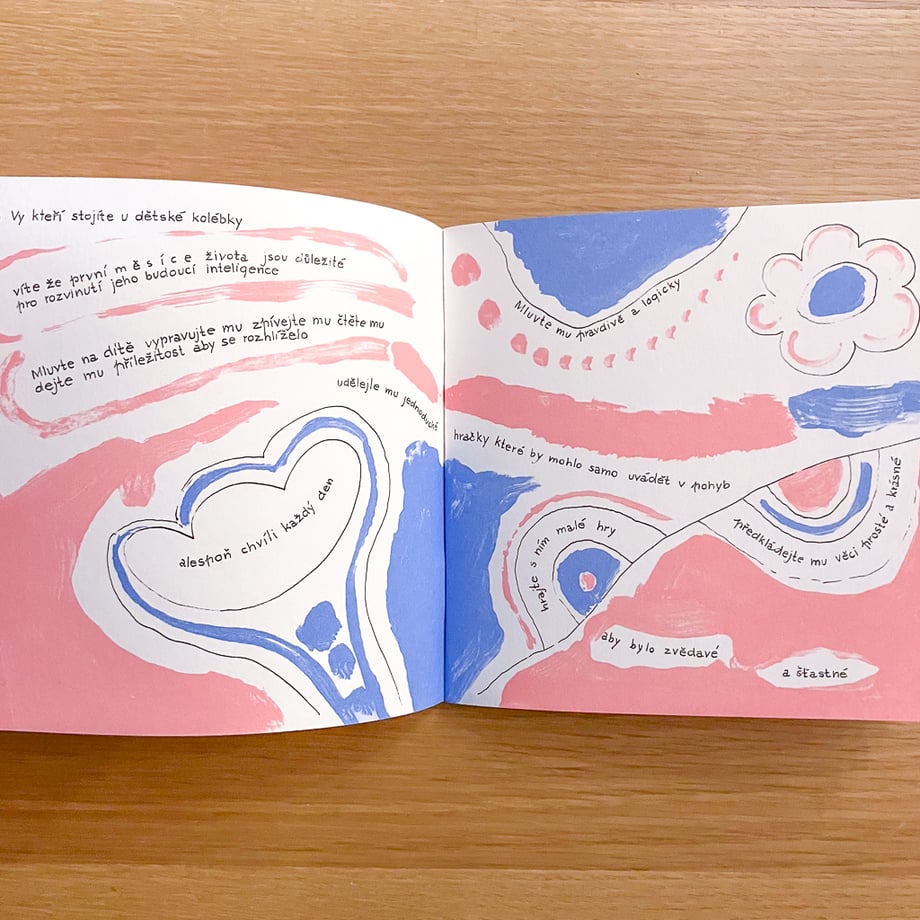 Vy kteří stojíte u dětské kolébky
víte že první měsíce života jsou důležité
pro rozvinutí jeho budoucí inteligence
Mluvte na dítě vypravujte mu zpívejte mu čtěte mu
dejte mu příležitost aby se rozhlíželo
udělejle mu jednoduché
alespoň chvíli každý den
Mluvte mu pravdivě a logicky
hračky které by mohlo samo uvádět v pohyb
hrajte s ním malé hry
předkládejte mu věci prosté a krásné
aby bylo zvědavé
a šťastné